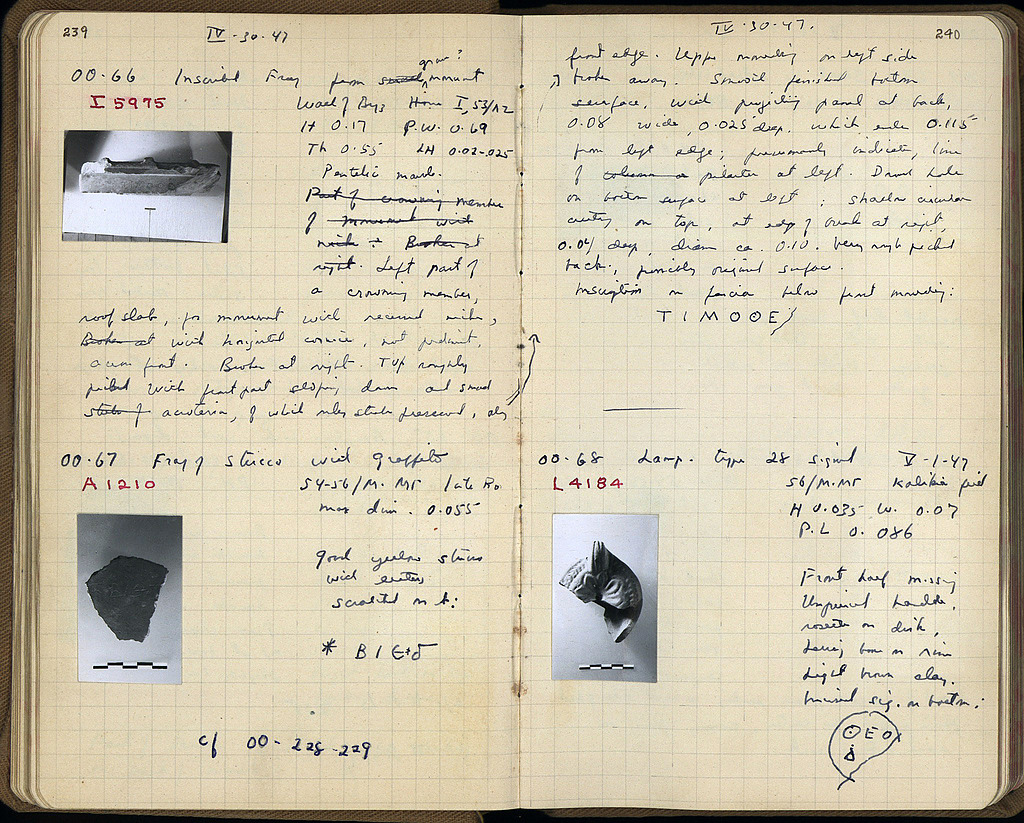 239
IV-30-47
OO·66 Inscribed Frag from small grave? monument
I 5975
Wall of Byz House I, 53/Λ2
H 0.17 P.W. 0.69
Th 0.55 LH 0.02-.025
Pentelic marb.
Part of crowning member
of monument with
niche. Broken at
right. Left part of
a crowning member,
roof slab, for monument with recessed niche,
Broken at with horizontal cornice, not pediment,
across front. Broken at right. Top roughly
picked with front part sloping down and small
stubs of acroteria, of which only stubs preserved, along
OO·67 Frag of stucco with graffito
A 1210
54-56/Μ-Μτ late Ro.
max dim. 0.055
Good yellow stucco
with letters
scratched on it:
* Β Ι Ε
cf OO-228-229
IV-30-47.
240
front edge. Upper moulding on left side
broken away. Smooth finished bottom
surface, with projecting panel at back,
0.08 wide, 0.025 deep, which ends 0.115
from left edge; presumably indicating line
of column or pilaster at left. Dowel hole
on bottom surface at left; shallow circular
cutting on top, at edge of break at right,
0.04 deep, diam ca. 0.10. Very rough picked
back, possibly original surface.
Inscription on fascia below front moulding:
ΤΙΜΟΘΕ
OO·68 Lamp. type 28 signed V-1-47
L 4184
56/Μ-Μτ Kallikia pit
H 0.035 W. 0.07
P.L 0.086
Front half missing
Unpierced handle,
rosette on disk,
herring bone on rim
Light brown clay.
Incised sig. on bottom:
ΘΕΟ